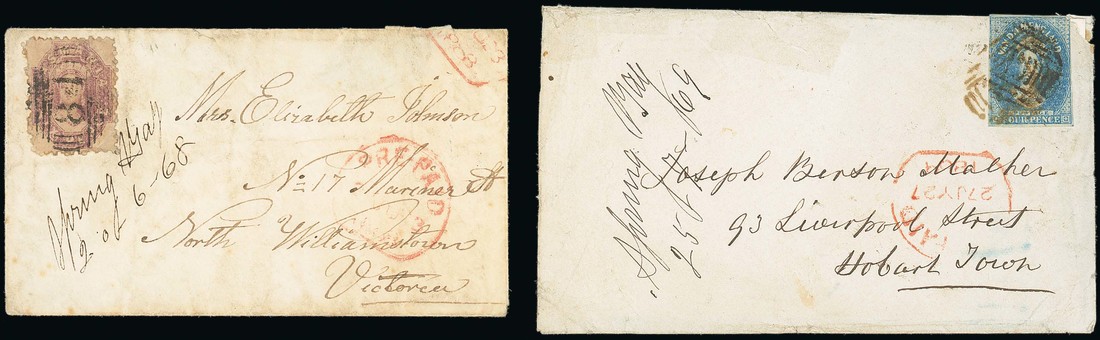 81
Mrs. Elizabeth Johnson
No 17 Mariner St
North Williamstown
Victoria
Spring Bay
2 of 6-68
PAID
VAN DIEMENS LAND
FOUR PENCE
Joseph Benson Mather
93 Liverpool Street
Hobart Town
Spring Bay
25 of 7-69
27 JY 27
PAID